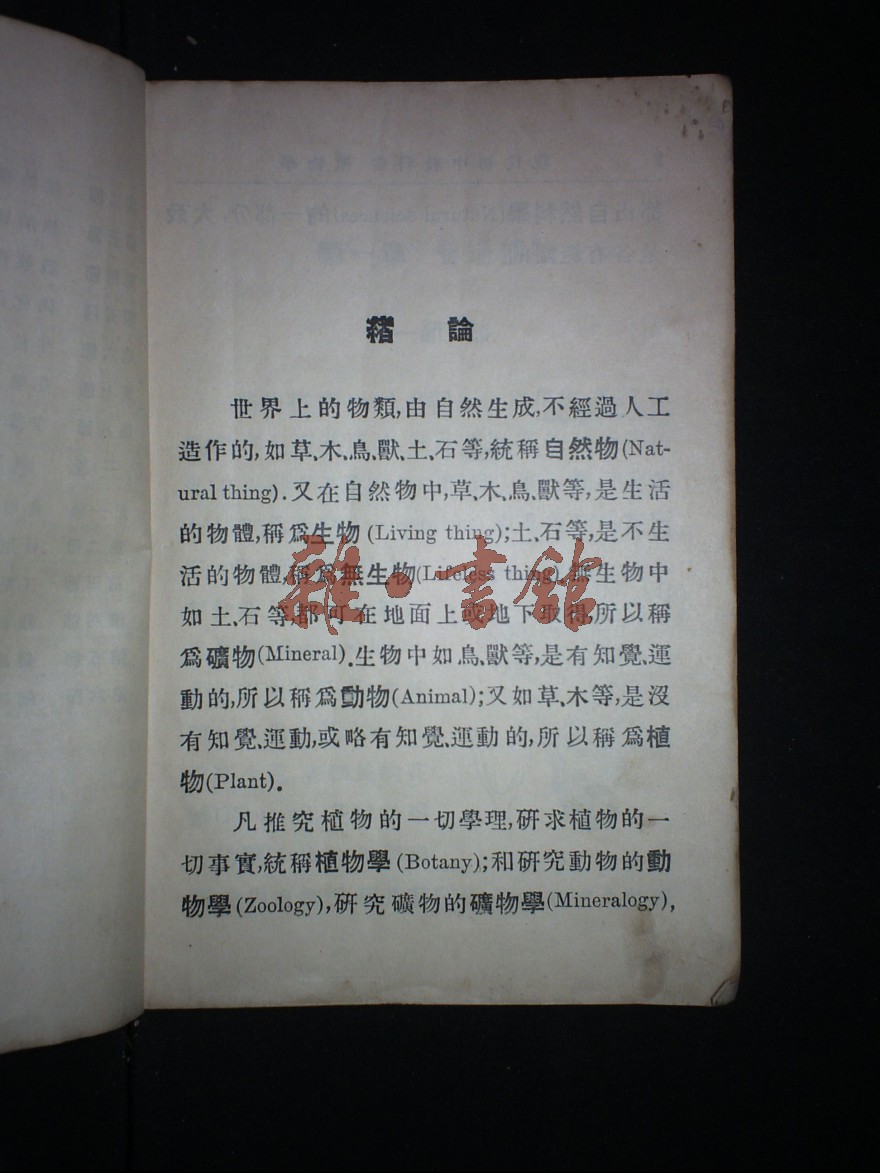 緒論
世界上的物類,由自然生成,不經過人工
造作的,如草、木、鳥、獸、土、石等,統稱自然物(Nat-
ural thing).又在自然物中,草、木、鳥、獸等,是生活
的物體,稱爲生物(Living thing);土、石等,是不生
活的物體,稱爲無生物(Lifeless thing).無生物中
如土、石等,都可在地面上或地下取得,所以稱
爲礦物(Mineral).生物中如鳥、獸等,是有知覺、運
動的,所以稱爲動物(Animal);又如草、木等,是沒
有知覺、運動,或略有知覺、運動的,所以稱爲植
物(Plant).
凡推究植物的一切學理,研求植物的一
切事實,統稱植物學(Botany);和研究動物的動
物學(Zoology),研究礦物的礦物學(Mineralogy),
雜·書館